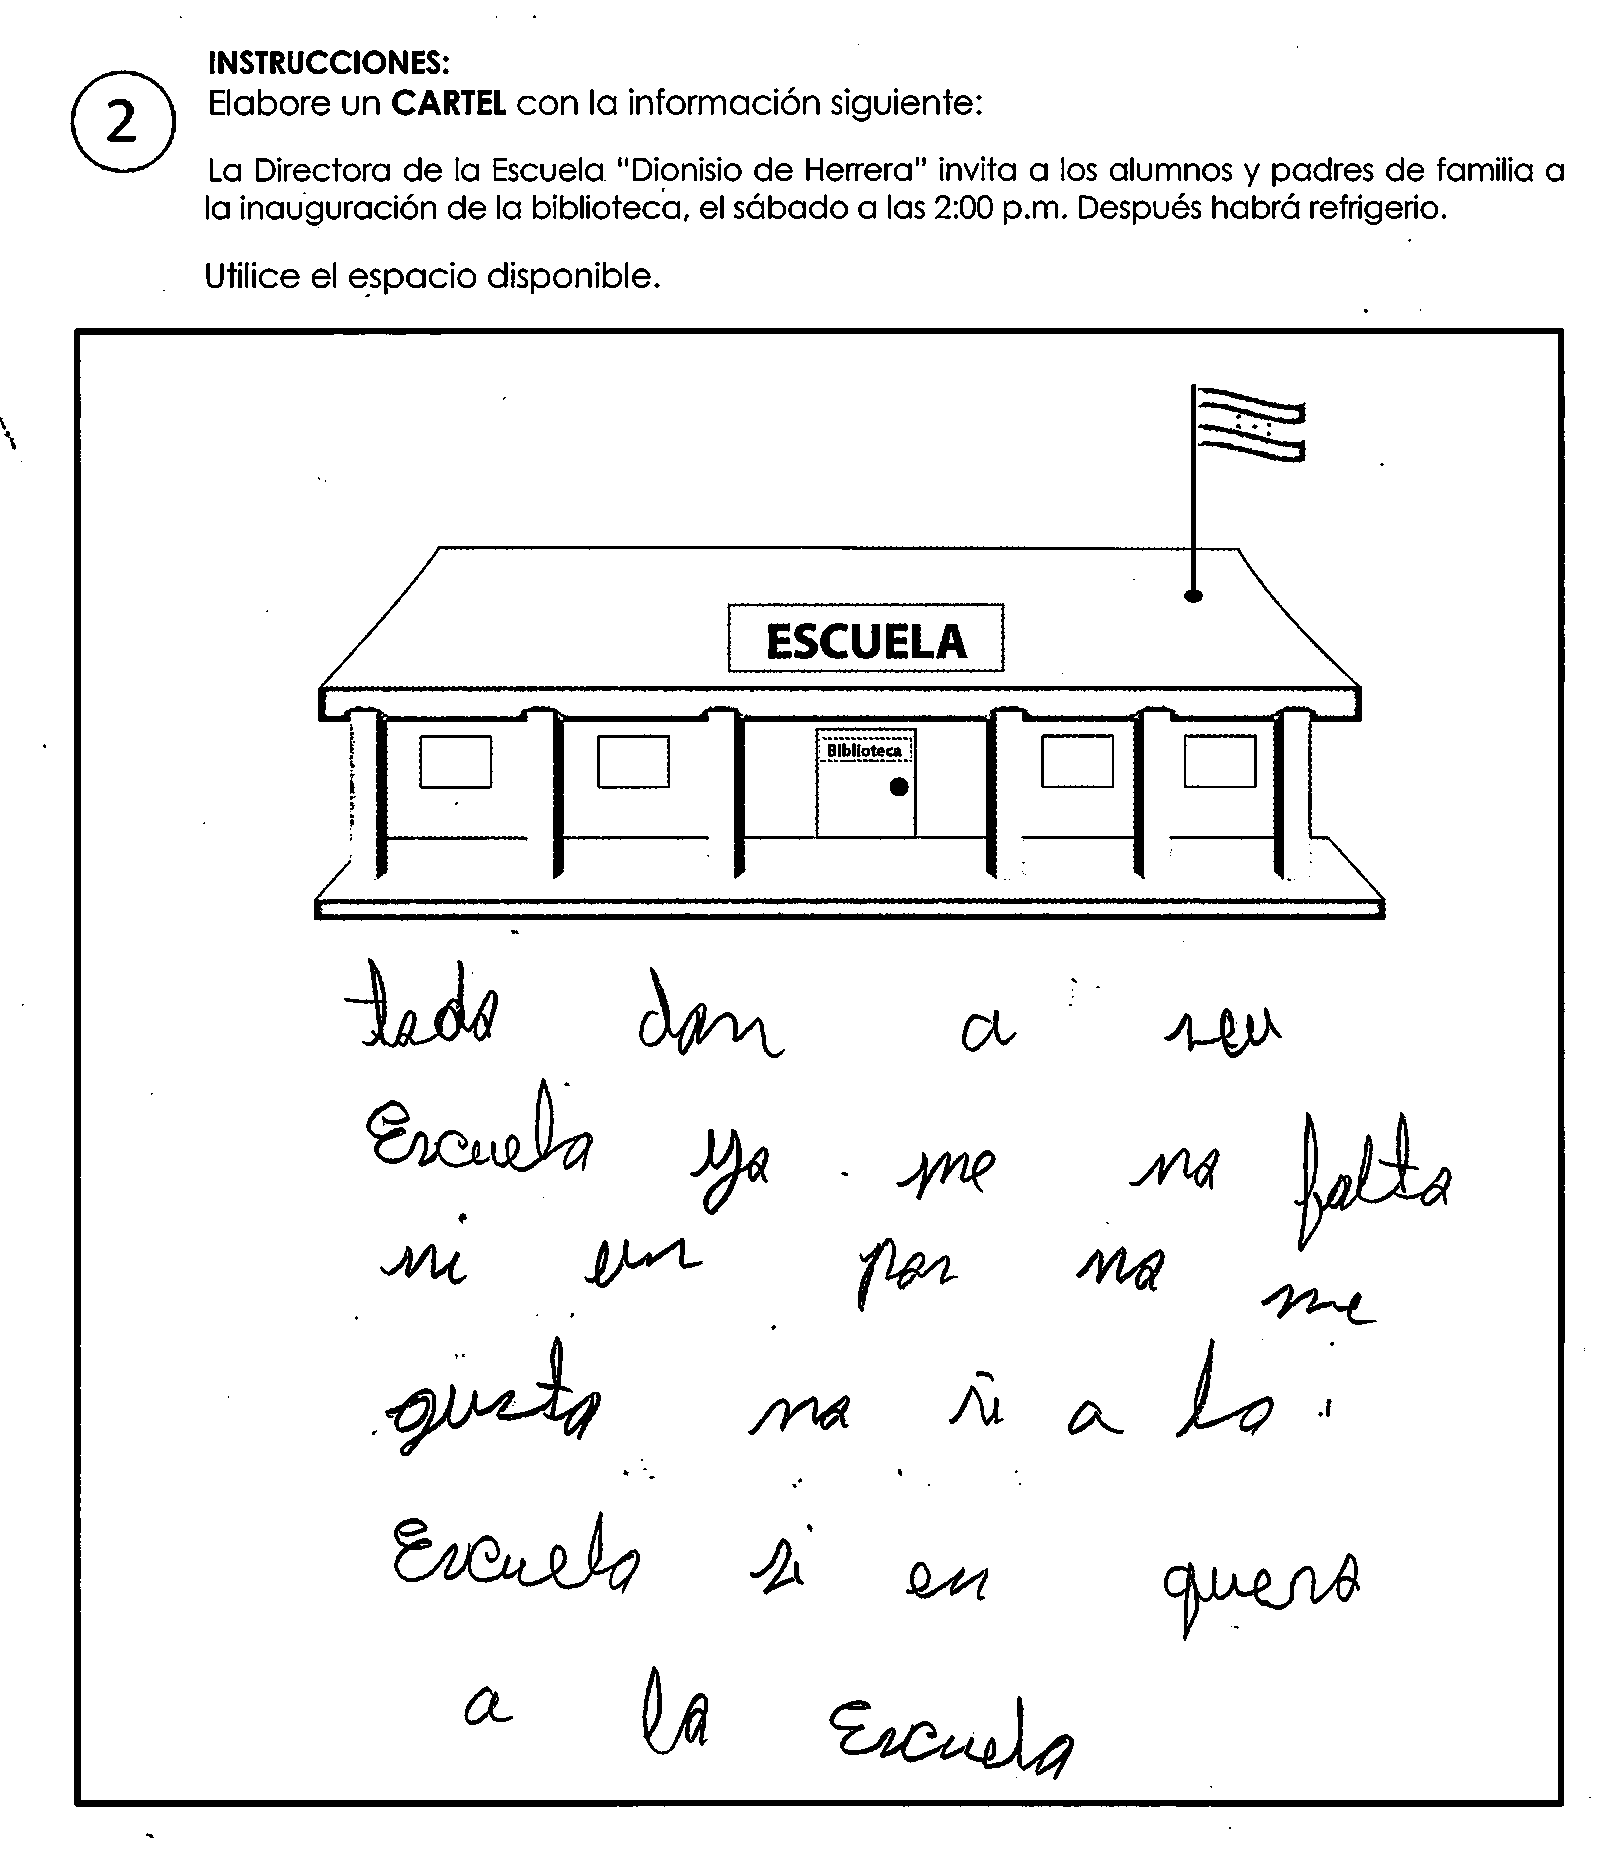 INSTRUCCIONES:
2
Elabore un CARTEL con la información siguiente:
La Directora de la Escuela "Dionisio de Herrera" invita a los alumnos y padres de familia a
la inauguración de la biblioteca, el sábado a las 2:00 p.m. Después habrá refrigerio.
Utilice el espacio disponible.
ESCUELA
Biblioteca
todo dan a seu
Escuela ya me no falta
ni un por no me
gusta no si a lo
Escuela si en quero
a la Escuela